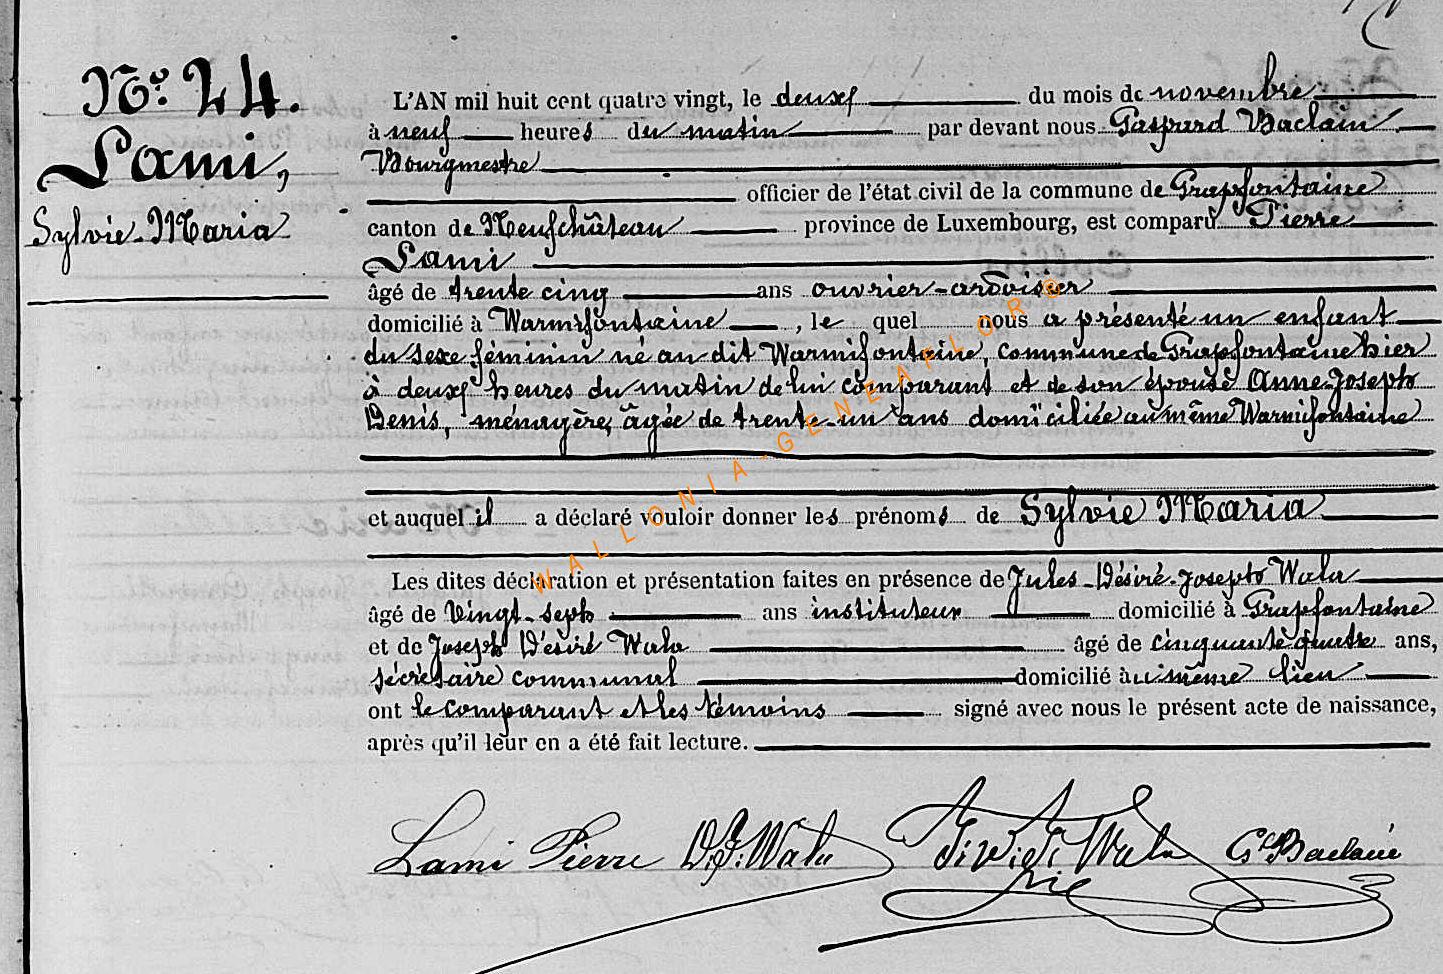 N.º 24.
Lami,
Sylvie-Maria
L'AN mil huit cent quatre vingt, le deux du mois de novembre
à neuf heures du matin par devant nous Gaspard Baclain
Bourgmestre
officier de l'état civil de la commune de Grapfontaine
canton de Neufchâteau province de Luxembourg, est comparu Pierre
Lami
âgé de trente cinq ans ouvrier-ardoisier
domicilié à Warmifontaine, le quel nous a présenté un enfant
du sexe féminin né au dit Warmifontaine, commune de Grapfontaine hier
à deux heures du matin de lui comparant et de son épouse Anne-Joseph
Denis, ménagère, âgée de trente-un ans domiciliée au même Warmifontaine
et auquel il a déclaré vouloir donner les prénoms de Sylvie Maria
Les dites déclaration et présentation faites en présence de Jules-Désiré-Joseph Wala
âgé de vingt-sept ans instituteur domicilié à Grapfontaine
et de Joseph Désiré Wala âgé de cinquante quatre ans,
sécrétaire communal domicilié au même lieu
ont le comparant et les témoins signé avec nous le présent acte de naissance,
après qu'il leur en a été fait lecture.
Lami Pierre D.J. Wala Wala G. Baclain
WALLONIA-GENEAFLOR ©